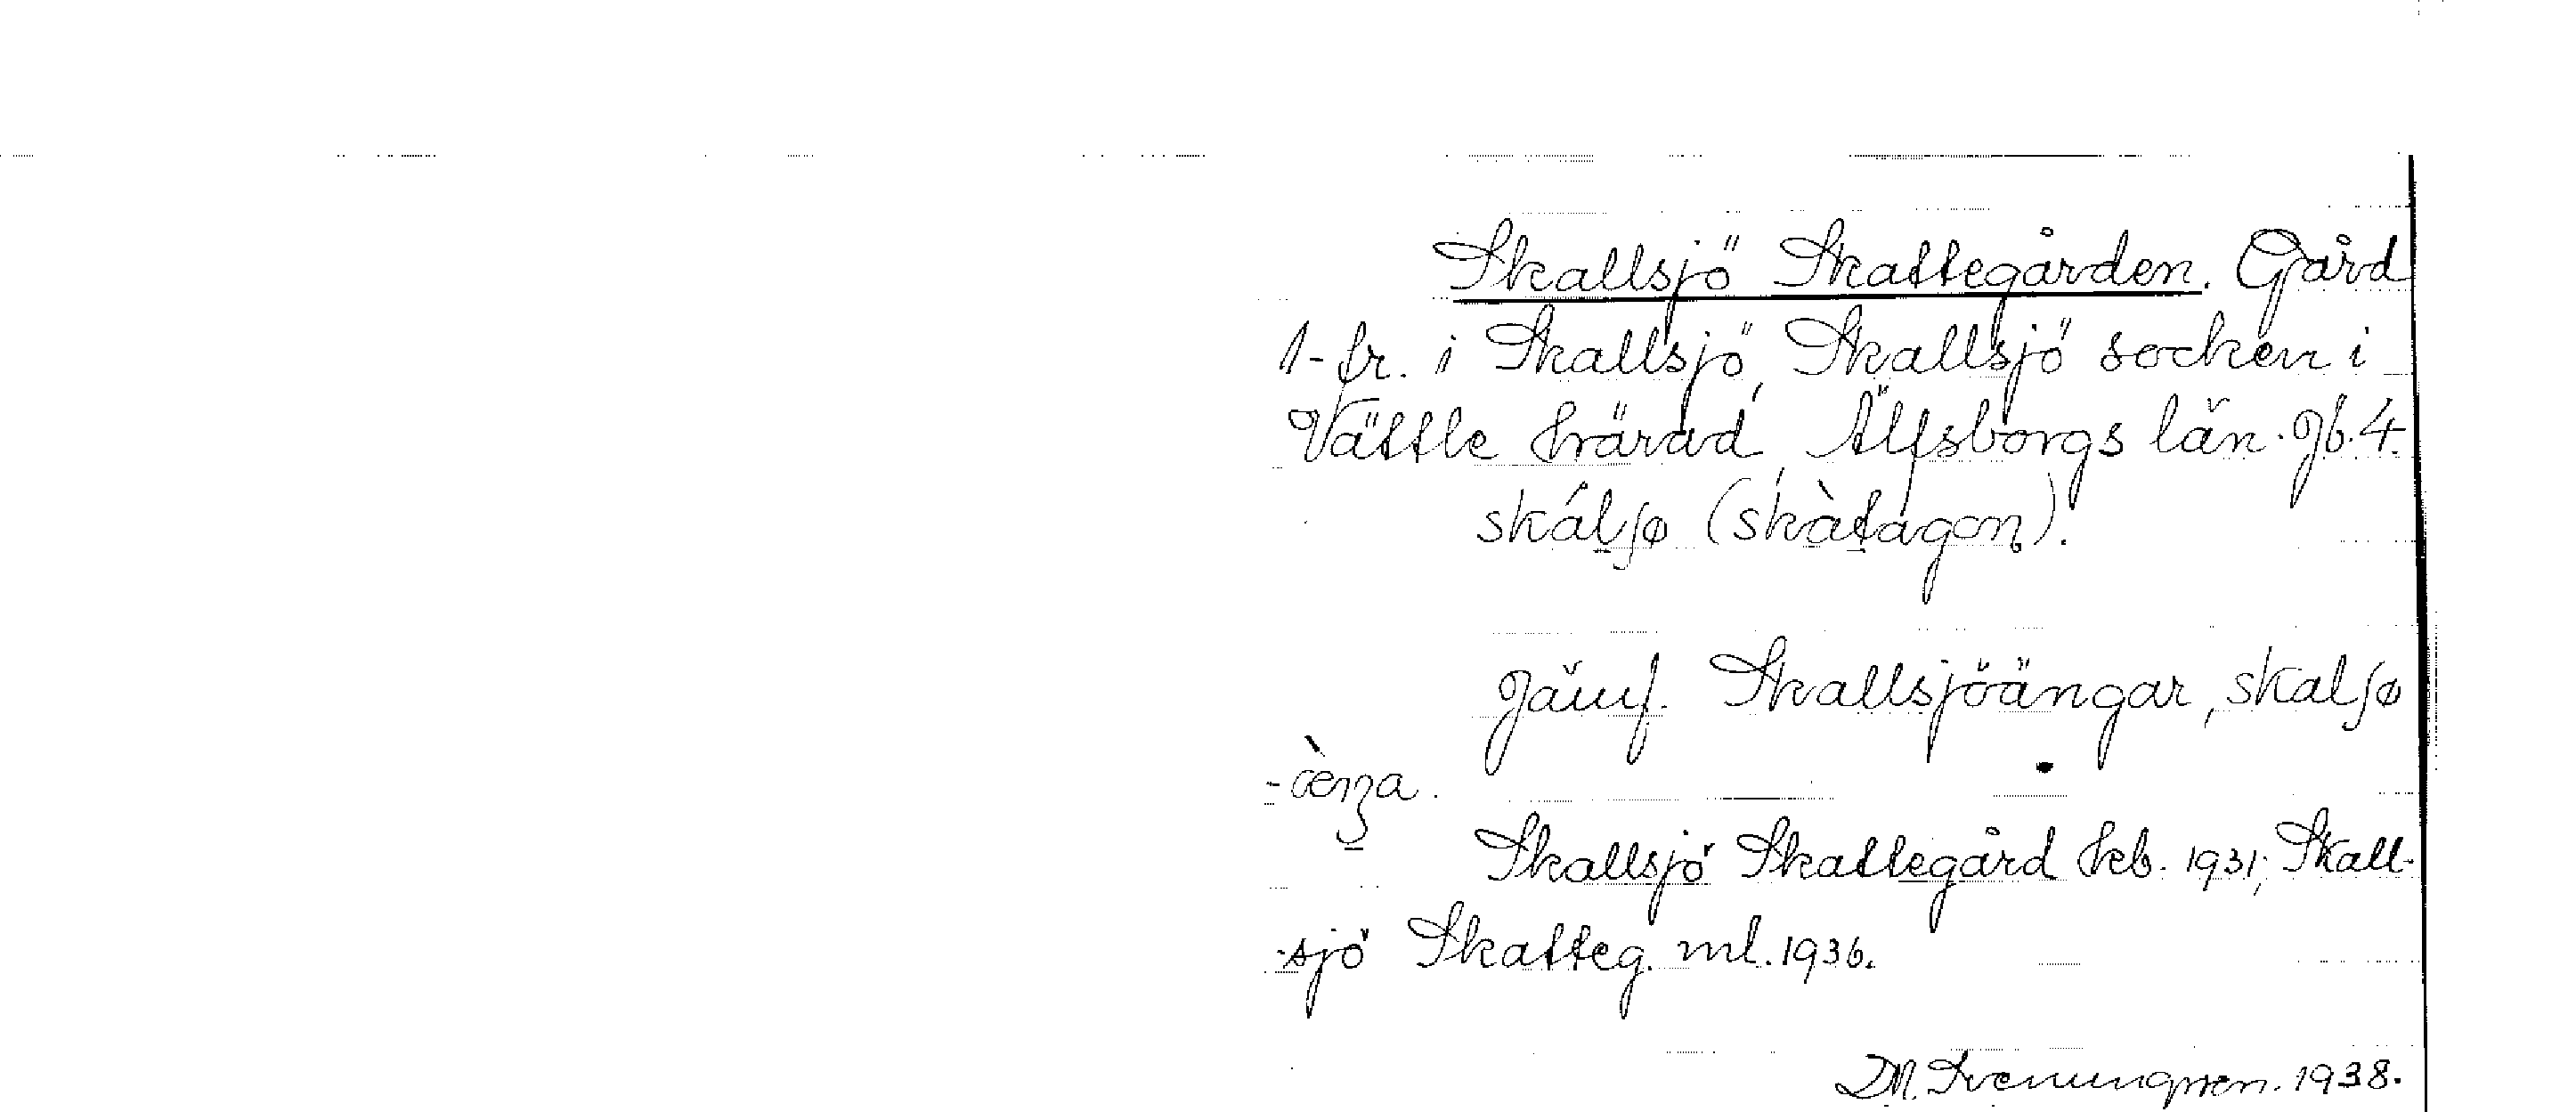 Skallsjö Skattegården. Gård
1-hr. i Skallsjö, Skallsjö socken i
Vättle härad, Älfsborgs län. Jb. 4.
skálʃø (skàtagɷn).
Jämf. Skallsjöängar, skalʃø
-æ̀ŋa.
Skallsjö Skattegård kb. 1931; Skall-
-sjö Skatteg. ml. 1936.
1938.